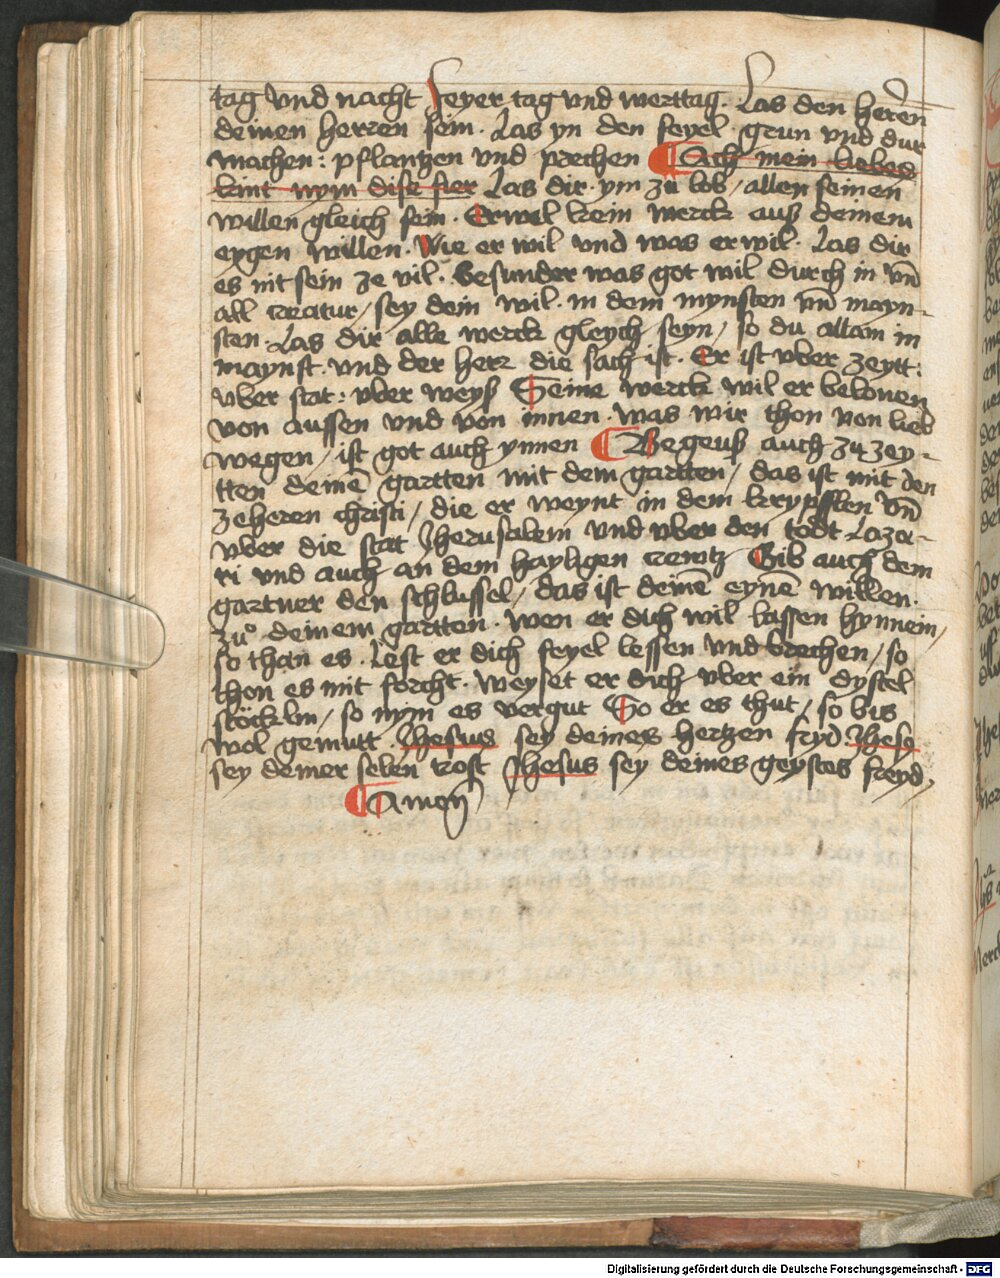 tag vnd nacht feyer tag vnd wercktag. Las den herrn
deinen herren sein. Las yn den feyel. grun vnd dur
machen: pflantzen vnd prechen Ach mein liebes
kint nym dise fier Las dir ym zu lob / allen seinen
willen gleich sein. Er wil kein werck auß deinem
eygen willen. Wie er wil vnd was er wil. Las dir
es nit sein ze vil. besunder was got wil durch in vn̄
all creatur / sey dein wil. in dem mynsten vn̄ mayn-
sten. Las dir alle werck gleych seyn / so du allain in
maynst. vnd der herr die sach ist. Er ist vber zeytt:
vber stat: vber weyß Seine werck wil er belonen
von aussen vnd von innen. was wir thon von lieb
wegen / ist got auch ynnen Begeuß auch zu zey-
tten deinē gartten mit dem gartten / das ist mit den
zeheren christi / die er weynt in dem kryppflen vn̄
vber die stat Jherusalem vnd vber den todt Laza-
ri vnd auch an dem hayligen creutz Gib auch dem
gartner den schlussel / das ist deinē eynē willen.
zů deinem gartten. wen er dich wil lassen hynnem /
so than es. Lest er dich feyel lessen vnd brechen / so
thon es mit forcht. weyset er dich vber ein dystel
stöcklin / so nym es vergut So er es thut / so bis
wol gemutt. Jhesus sey deines hertzen fryd Jhesus
sey deiner selen trost Jhesus sey deines geystes freyd,
Amen